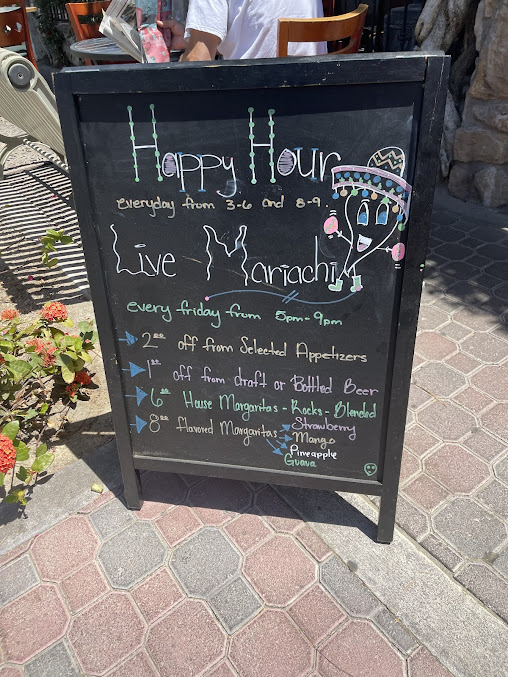 Happy Hour
everyday from 3-6 and 8-9.
Live Mariachi
every friday from 5pm-9pm
2⁰⁰ off from Selected Appetizers
1⁰⁰ off from draft or Bottled Beer
6⁰⁰ House Margaritas - Rocks - Blended
8⁰⁰ flavored Margaritas Strawberry
Mango
Pineapple
Guava